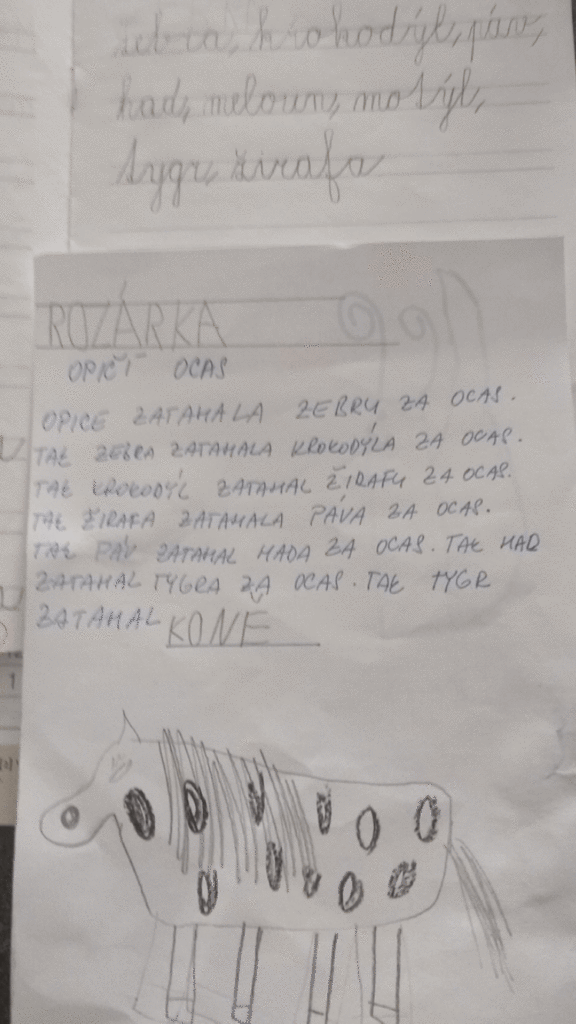 zebra, krokodýl, páv,
had, meloun, motýl,
tygr, žirafa
ROZÁRKA
OPIČÍ OCAS
OPICE ZATAHALA ZEBRU ZA OCAS.
TAK ZEBRA ZATAHALA KROKODÝLA ZA OCAS.
TAK KROKODÝL ZATAHAL ŽIRAFU ZA OCAS.
TAK ŽIRAFA ZATAHALA PÁVA ZA OCAS.
TAK PÁV ZATAHAL HADA ZA OCAS. TAK HAD
ZATAHAL TYGRA ZA OCAS. TAK TYGR
ZATAHAL KONĚ
1